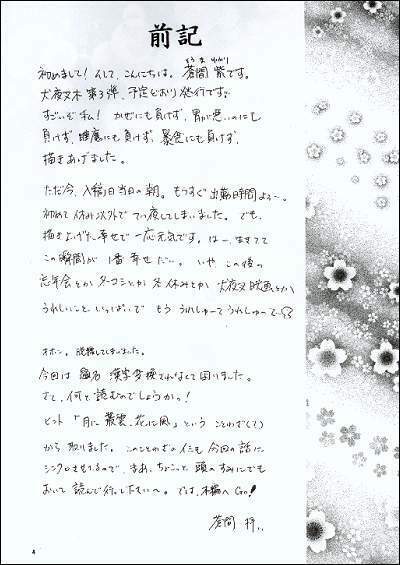 前記
初めまして!そして、こんにちは。蒼間 紫です。
犬夜叉本 第3弾、予定どおり発行です。
すごいぞ私! かぜにも負けず、胃が悪いのにも
負けず、睡魔にも負けず、暴食にも負けず、
描きあげました。
ただ今、入稿日当日の朝。もうすぐ出勤時間よ〜。
初めて休み以外で てつ夜してしまいました。でも、
描き上げた幸せで一応元気です。はー、生きてて
この瞬間が1番幸せだい。いや、この後の
忘年会とか ターコシとか 冬休みとか 犬夜叉映画とか
うれしいこと、いっぱいで もう うれしゅーてうれしゅーて
オホン。脱線してしまいました。
今回は 題名 漢字変換されなくて困りました。
さて、何と読むのでしょうか。!
ヒント「月に叢雲、花に風」という ことわざ(?)
から 取りました。このことわざのイミも 今回の話に
シンクロさせてるので、まあ、ちょこっと 頭のすみにでも
おいて 読んで行って下さいへ。では、本編へGo!
蒼間 拝
4